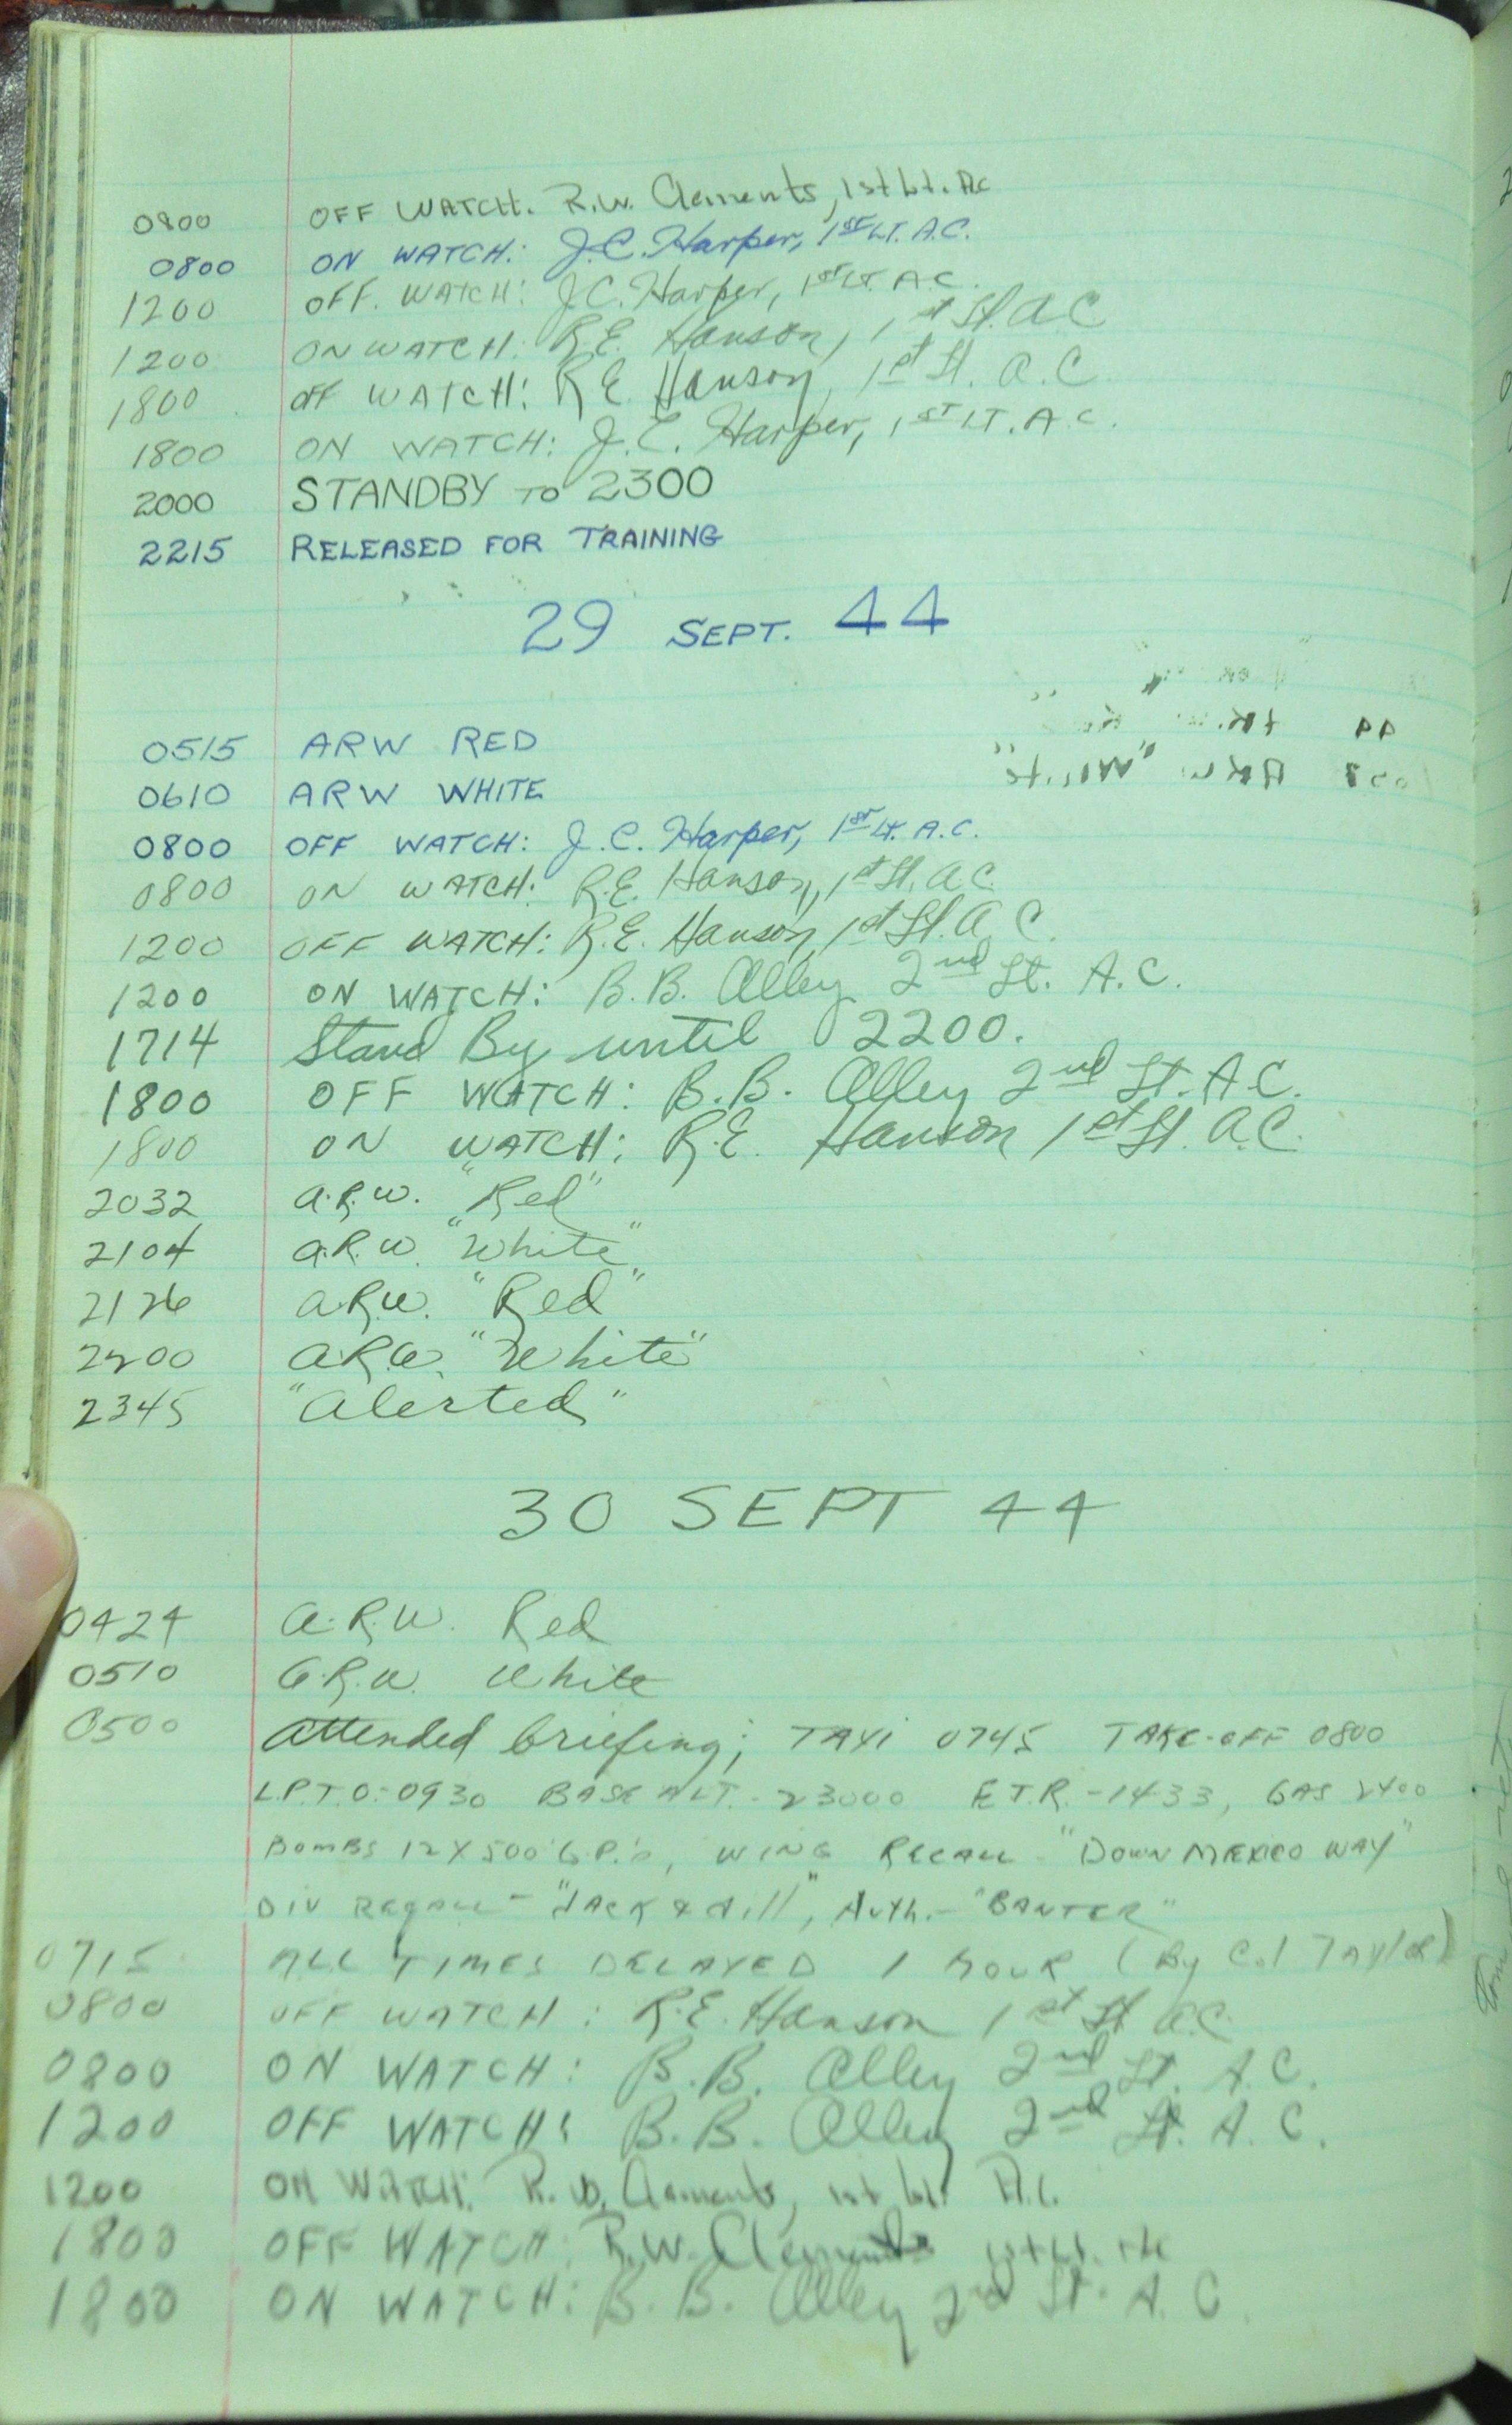 0800 OFF WATCH. R.W. Clements, 1st Lt. AC
0800 ON WATCH: J.C. Harper, 1ST LT. A.C.
1200 OFF. WATCH: J.C. Harper, 1ST LT. A.C.
1200 ON WATCH: R.E. Hanson, 1st Lt. A C
1800 OFF WATCH: R E. Hanson, 1st Lt. A.C.
1800 ON WATCH: J.C. Harper, 1ST LT. A.C.
2000 STANDBY TO 2300
2215 RELEASED FOR TRAINING
29 SEPT. 44
0515 ARW RED
0610 ARW WHITE
0800 OFF WATCH: J.C. Harper, 1ST Lt. A.C.
0800 ON WATCH: R.E. Hanson, 1st Lt. A.C.
1200 OFF WATCH: R.E. Hanson, 1st Lt. A.C.
1200 ON WATCH: B.B. Alley 2nd Lt. A.C.
1714 Stand By until 2200.
1800 OFF WATCH: B.B. Alley 2nd Lt. A.C.
1800 ON WATCH: R.E. Hanson 1st Lt. A.C.
2032 A.R.W. "Red"
2104 A.R.W. "White"
2126 A.R.W. "Red"
2200 A.R.W. "White"
2345 "Alerted"
30 SEPT 44
0424 A.R.W. Red
0510 A.R.W. White
0500 Attended briefing; TAXI 0745 TAKE-OFF 0800
L.P.T.O.-0930 BASE ALT.-23000 E.T.R.-1433, GAS 2400
BOMBS 12X500 G.P.'s, WING RECALL-"DOWN MEXICO WAY"
DIV Recall-"JACK & Jill", Auth.-"BANTER"
0715 ALL TIMES DELAYED 1 HOUR (By Col Taylor)
0800 OFF WATCH: R.E. Hanson 1st Lt A.C.
0800 ON WATCH: B.B. Alley 2nd Lt. A.C.
1200 OFF WATCH: B.B. Alley 2nd Lt. A.C.
1200 ON WATCH: R.W. Clements, 1st Lt. A.C.
1800 OFF WATCH: R.W. Clements 1st Lt. AC
1800 ON WATCH: B.B. Alley 2nd Lt. A.C.